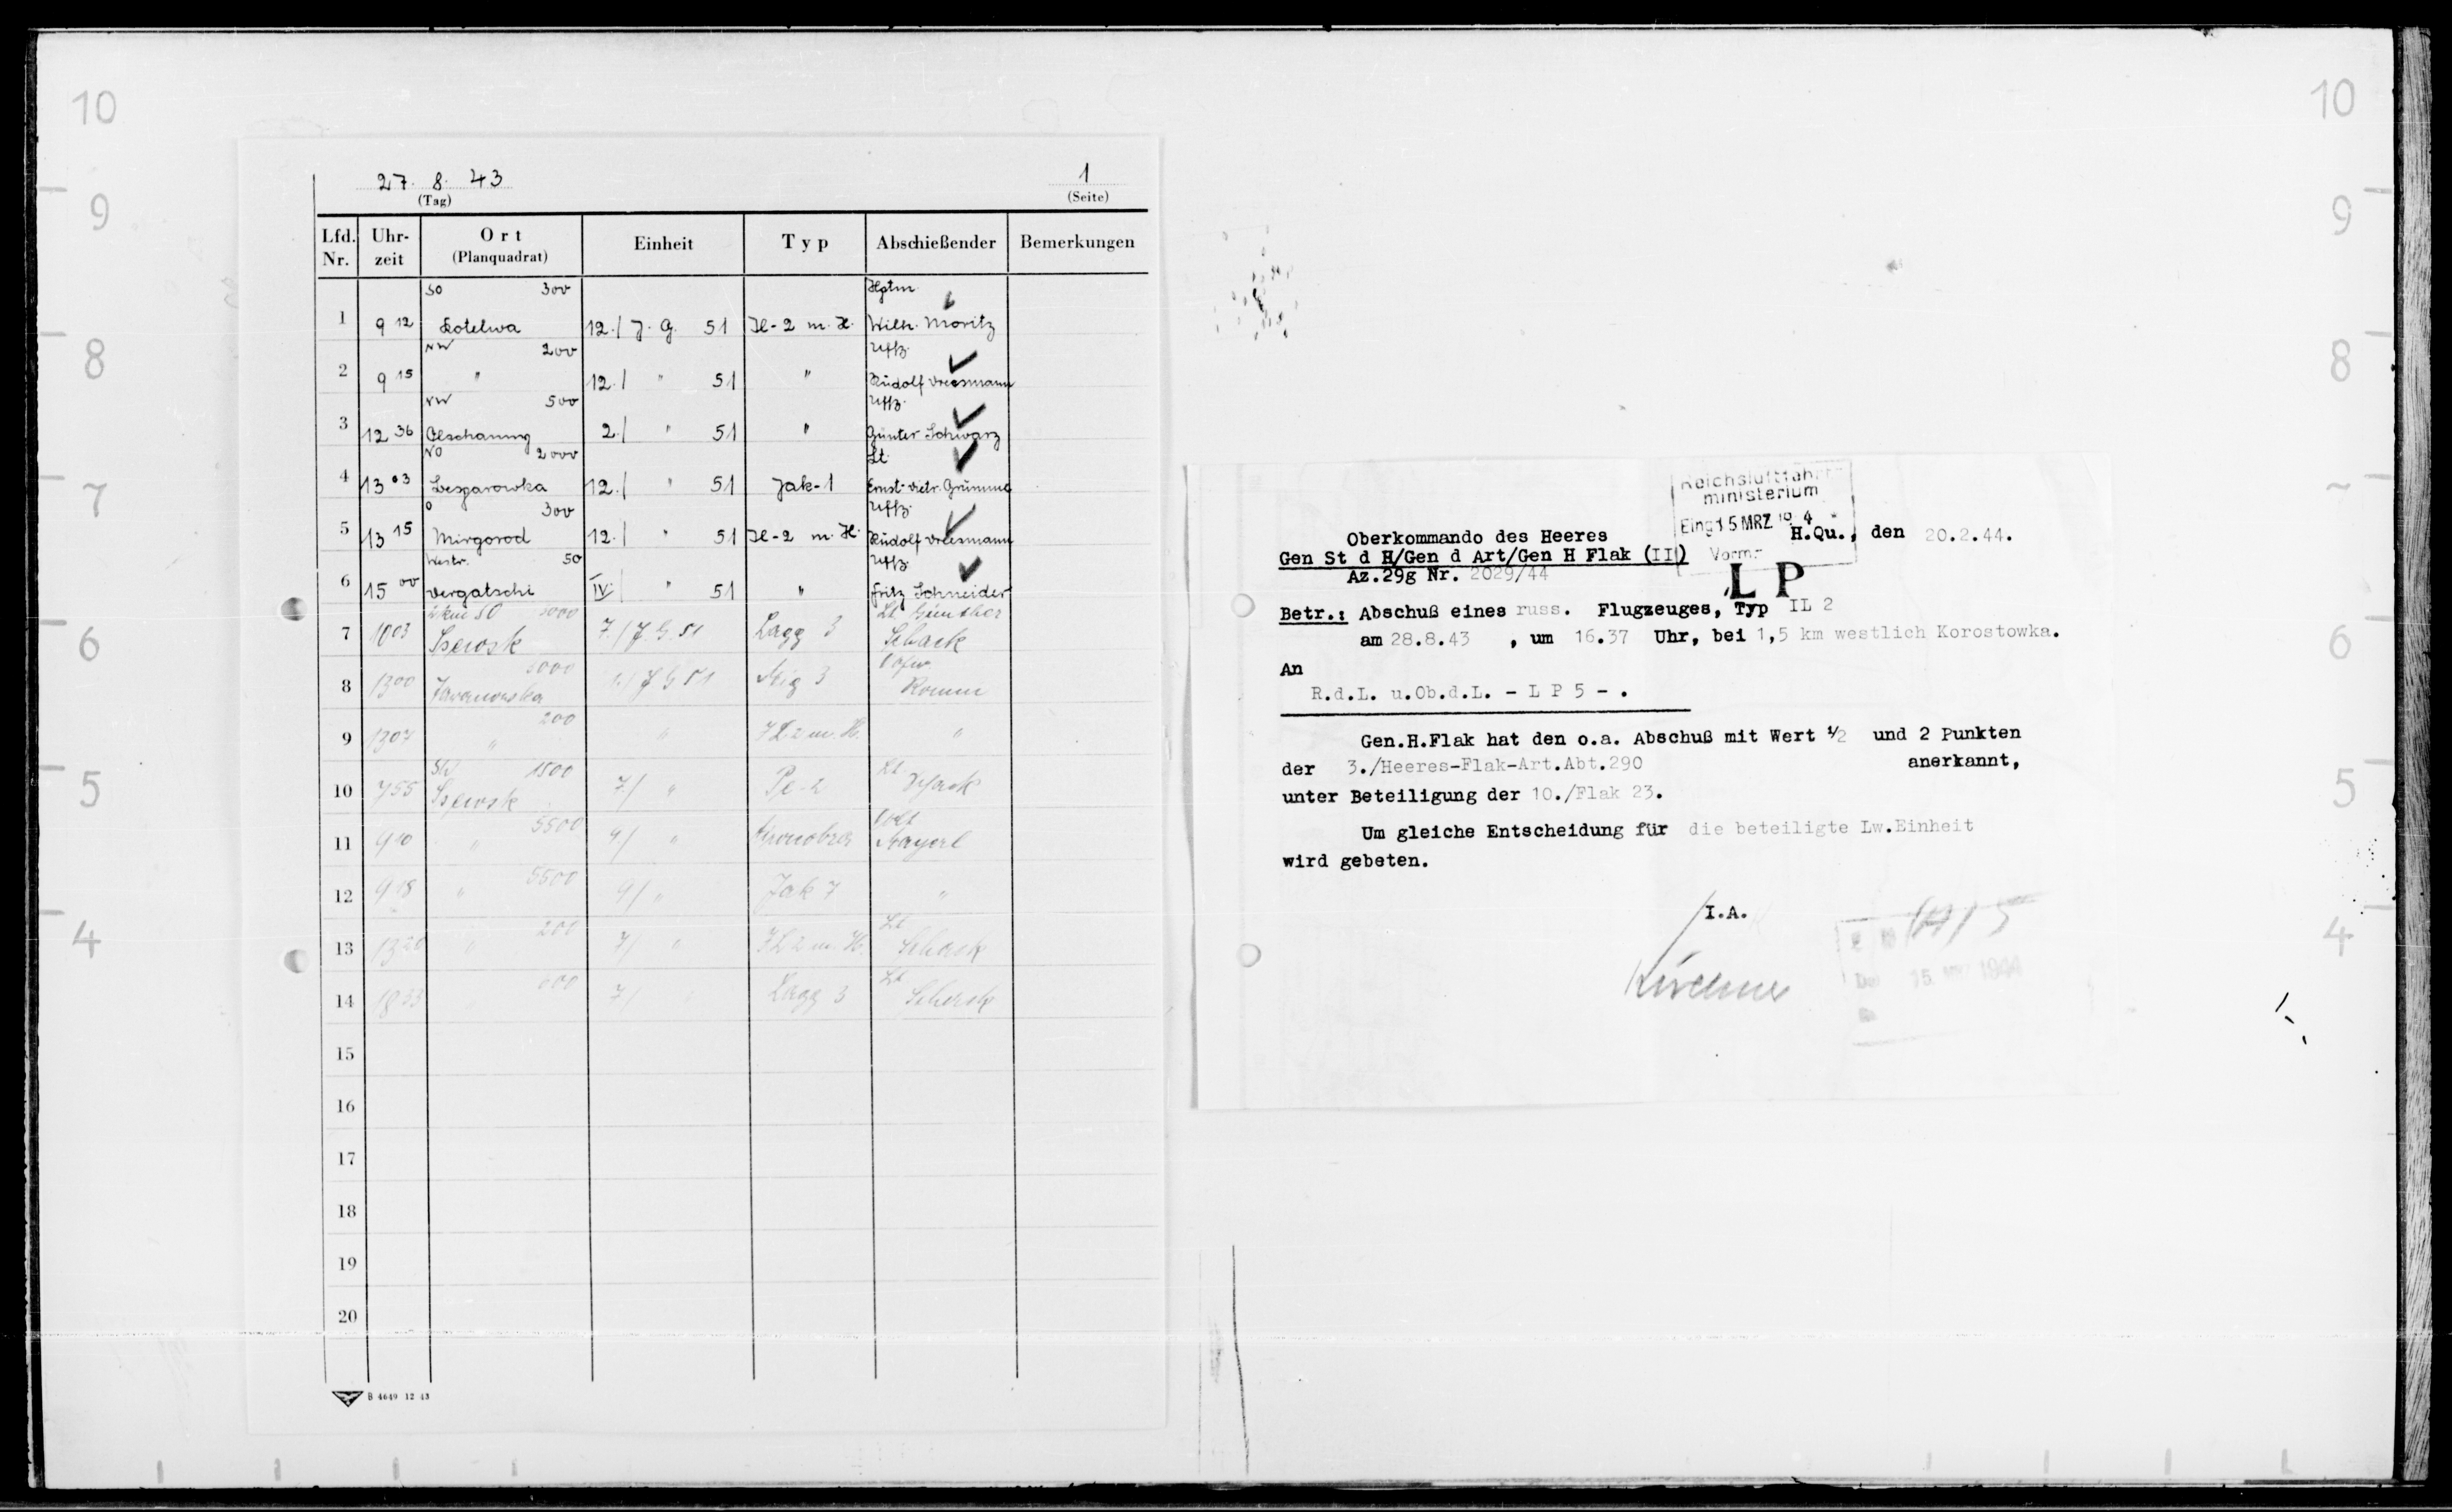 10
9
8
7
6
5
4
27. 8. 43
(Tag)
1
(Seite)
Lfd. Nr. Uhrzeit Ort (Planquadrat) Einheit Typ Abschießender Bemerkungen
SO 300 Hptm.
1 9 12 Kotelwa 12./ J. G. 51 Il-2 m. H. Wilh. Moritz
NW 200 Uffz.
2 9 15 " 12./ " 51 " Rudolf
NW 500 Uffz.
3 12 36 2./ " 51 " Günter Schwarz
NO 2000 Lt.
4 13 03 12./ " 51 Jak-1
O 300 Uffz.
5 13 15 Mirgorod 12./ " 51 Il-2 m. H. Rudolf
50 Uffz.
6 15 00 IV./ " 51 " Fritz Schneider
SO Lt. Günther
7 10 03 7./J.G. 51 Lagg 3 Schack
Ofw.
8 13 00 J G 51 Mig 3 Romm
200
9 13 07 " " IL 2 m. H. "
SW 1500 Lt
10 7 55 7/ " Pe-2 Schack
5500
11 9 10 " 9/ " Mayerl
5500
12 9 18 " 9/ " Jak 7 "
200 Lt
13 13 20 " 7/ " IL 2 m. H. Schack
600 Lt
14 18 33 7/ Lagg 3 Schack
15
16
17
18
19
20
B 4649 12 43
Reichsluftfahrt-
ministerium
Eing 15 MRZ 19 4
Vorm.
Oberkommando des Heeres
H.Qu., den 20.2.44.
Gen St d H/Gen d Art/Gen H Flak (II)
Az.29g Nr. 2029/44
L P
Betr.: Abschuß eines russ. Flugzeuges, Typ IL 2
am 28.8.43 , um 16.37 Uhr, bei 1,5 km westlich Korostowka.
An
R.d.L. u.Ob.d.L. - L P 5 - .
Gen.H.Flak hat den o.a. Abschuß mit Wert 1/2 und 2 Punkten
der 3./Heeres-Flak-Art.Abt.290 anerkannt,
unter Beteiligung der 10./Flak 23.
Um gleiche Entscheidung für die beteiligte Lw.Einheit
wird gebeten.
I.A.
15. 1944
10
9
8
6
5
4